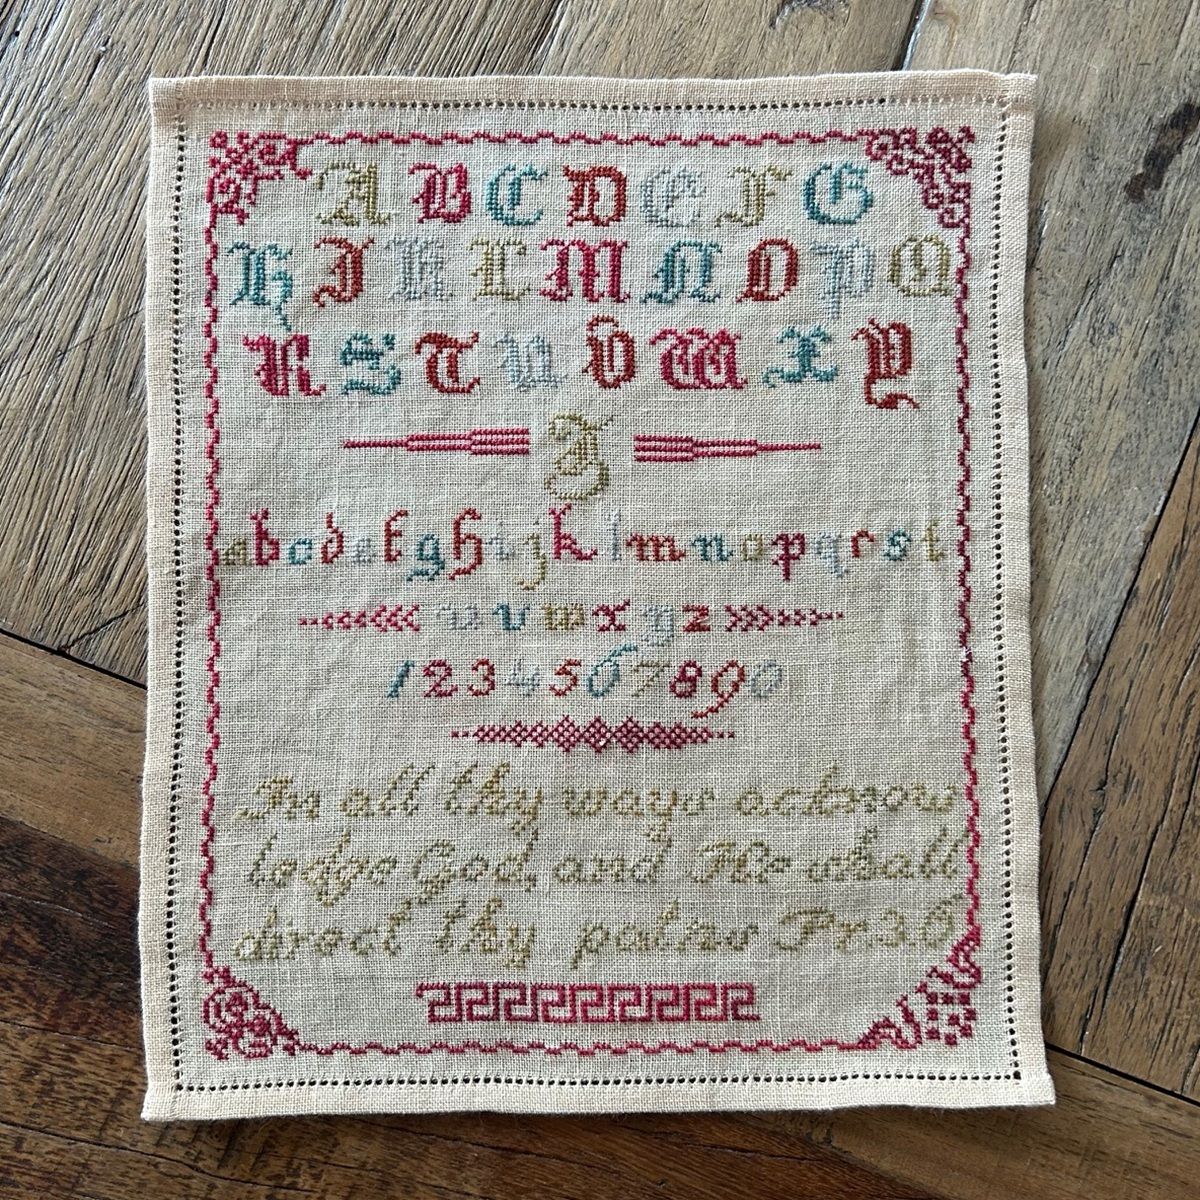 A B C D E F G
H I K L M N O P Q
R S T U V W X Y
Z
a b c d e f g h i j k l m n o p q r s t
u v w x y z
1 2 3 4 5 6 7 8 9 0
In all thy ways acknow
ledge God, and He shall
direct thy paths Pr.3.6